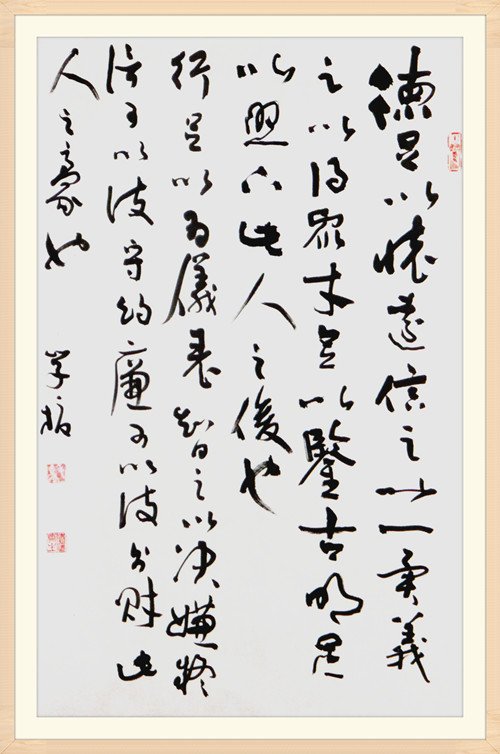 德足以懷遠信足以一異義
足以得眾才足以鑒古明足
以照下此人之俊也
行足以為儀表智足以決嫌疑
信可以使守約廉可以使分財此
人之豪也